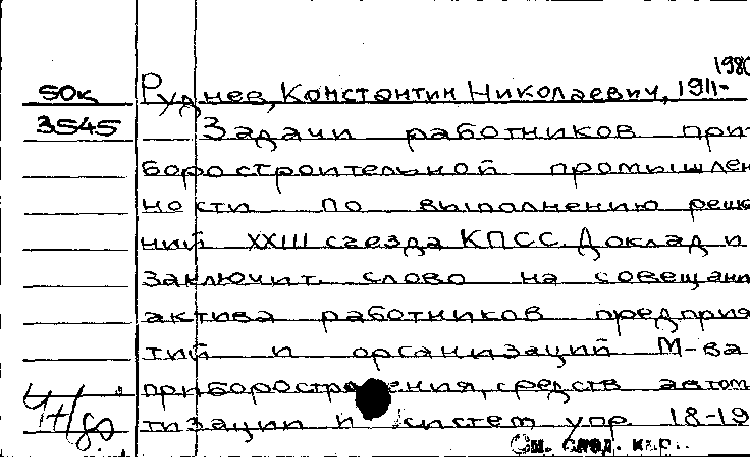 1980
50к Руднев, Константин Николаевич, 1911-
3545 Задачи работников при-
боростроительной промышлен
ности по выполнению реше
ний XXIII съезда КПСС. Доклад и
заключит. слово на совещани
актива работников предприя
тий и организаций М-ва
приборостроения, средств автом
тизации и систем упр. 18-19
См. след. карт.